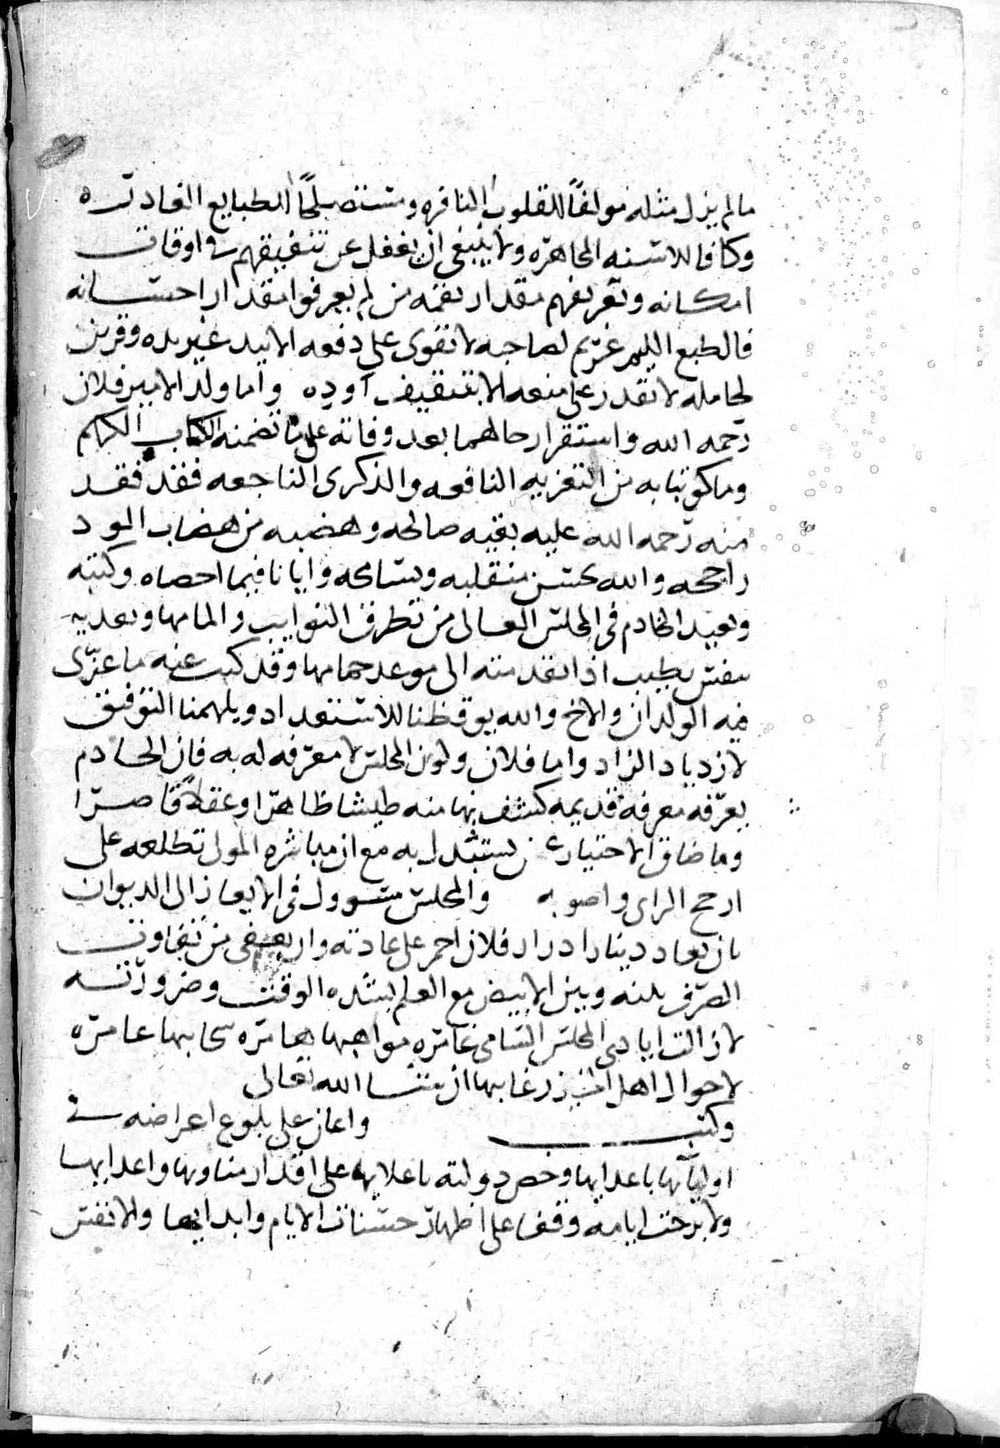 ما لم يزل مثله مولفاً للقلوب النافره ومستصلحاً للطبايع الغادره
وكافا للالسنه المجاهره ولا ينبغى ان يغفل عن تنفيقهم فى اوقات
امكانه وتعريفهم مقدار نقمه من لم يعرفوا مقدار احسانه
فالطبع اللييم غريم لصاحبه لا تقوى على دفعه الا بيد غير يده وقرين
لحامله لا تقدر على منعه الا بتثقيف اوده واما ولد الامير فلان
رحمه الله واستقرار حالهما بعد وفاته على ما تضمنه الكتاب الكريم
وما كوتبا به من التعزيه النافعه والذكرى الناجعه فقد فقد
منه رحمه الله عليه بقيه صالحه وهضبه من هضاب الود
راجحه والله يحسن منقلبه ويسامحه وايانا فيما احصاه وكتبه
ويعيد الخادم فى المجلس العالى من تطرق النوايب والمامها ويفديه
بنفس يطيب اذا تقدمته الى موعد حمامها وقد كتب عنه ما عزى
فيه الولدان والاخ والله يوقظنا للاستعداد ويلهمنا التوفيق
لازدياد الزاد واما فلان وكون المجلس لا معرفه له به فان الخادم
يعرفه معرفه قديمه كشف بها منه طيشا ظاهرا وعقلاً قاصرا
وما ضاق الاختيار عن يستبدل به مع ان مباشره المولى تطلعه على
ارجح الراى واصوبه والمجلس مسوول فى الايعاز الى الديوان
بان يعاد دينار ادرار فلان احمر على عادته وان يعفى من تفاوت
الصرف بينه وبين الابيض مع العلم بشده الوقت وضرورته
لا زالت ايادى المجلس السامى غامره مواهبها هامره سحابها عامره
لاحوال اهل الخير رغابها ان شا الله تعالى
وكتب واعان على بلوغ اغراضه فى
اوليآيها باعدايها وخص دولته باعلايها على اقدار مناويها واعدايها
ولا برحت ايامه وقفا على اظهار حسنات الايام وابدايها والانفس